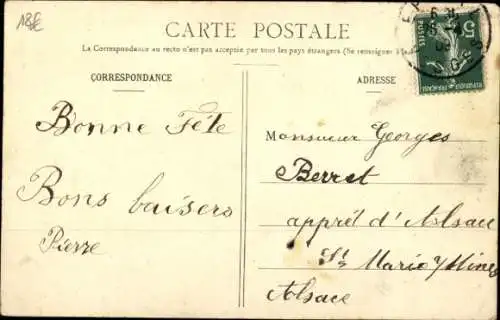 18€
CARTE POSTALE
La Correspondance au recto n'est pas acceptée par tous les pays étrangers (Se renseigner à la
CORRESPONDANCE
ADRESSE
Bonne Fête
Bons baisers
Pierre
Monsieur Georges
Berret
apprêt d'Alsace
Ste Marie
Alsace
5
POSTES
RÉPUBLIQUE FRANÇAISE